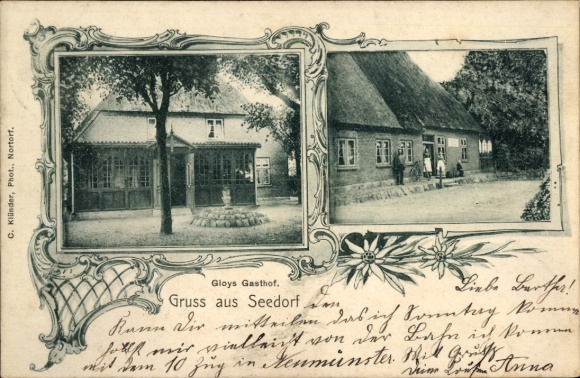 C. Klünder, Phot., Nortorf.
Gloys Gasthof.
Gruss aus Seedorf
den
Liebe Bertha!
Kann Dir mitteilen das ich Sonntag komme
mir vielleicht von der Bahn ich komme
mit dem 10 Zug in Neumünster. Mit Gruß
Deine Anna